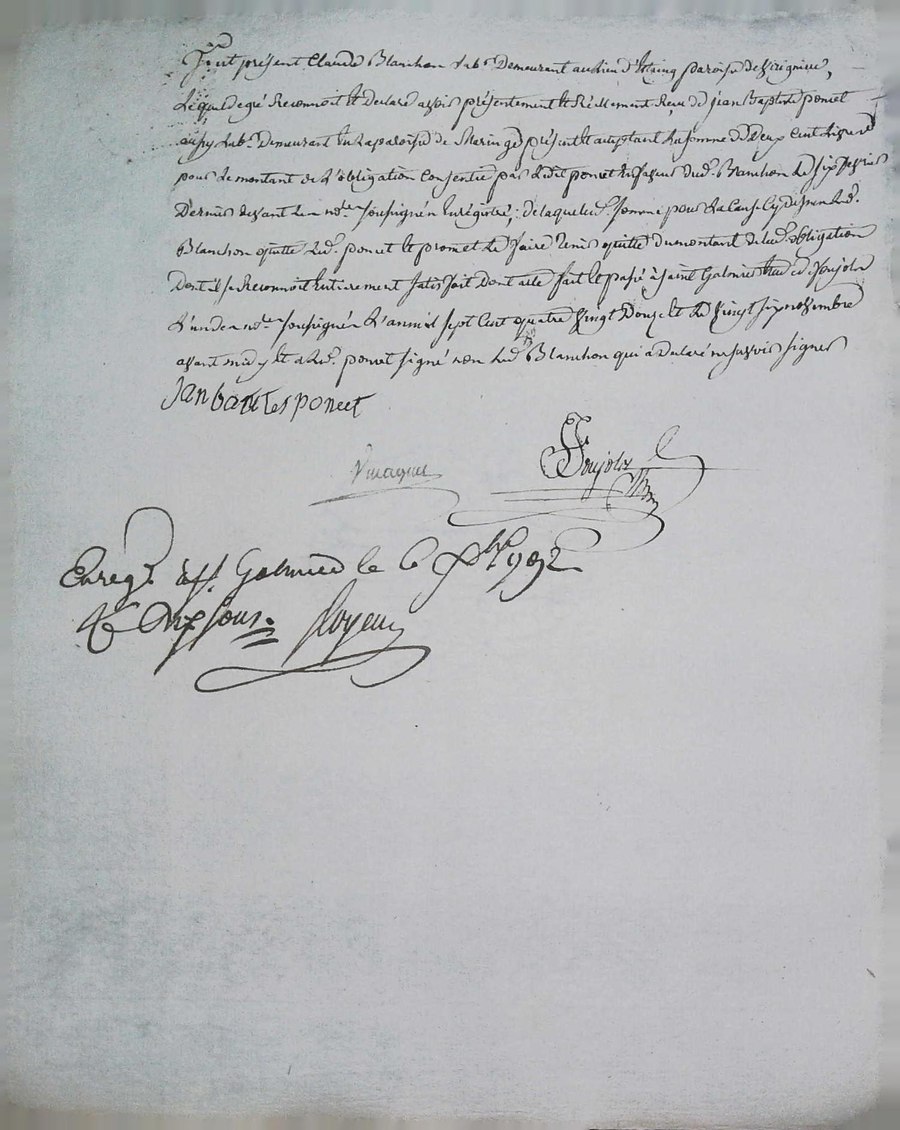 Fut présent Claude Blanchon lab.r Demeurant au lieu d' paroisse de Virignieu,
Lequel de gré Reconnoit et declare avoir présentement et Réellement Reçu de jean Baptiste poncet
aussy Lab.r Demeurant en La paroisse de Maringe présent et acceptant La somme de Deux Cent Livres
pour Le montant de L'obligation Consentie par Ledit poncet en faveur dud. Blanchon Le six fevrier
Dernier devant Le n.re soussigné Enregistré; de laquelle somme pour La Cause Cy dessus Led.
Blanchon quitte Led. poncet et promet Le faire tenir quitte du montant de lad. obligation
Dont il se Reconnoit Entierement satisfait Dont acte fait et passé à Saint Galmier Etude de Poujola
L'un de n.res soussignés L'an mil sept Cent quatre Vingt Douze et Le Vingt six novembre
avant midy et a Led. poncet signé non Led. Blanchon qui a Declaré ne savoir signer
Jan batites poncet
Poujola
Enreg.é à S.t Galmier le 6 Xbre 1792
Dix sous.